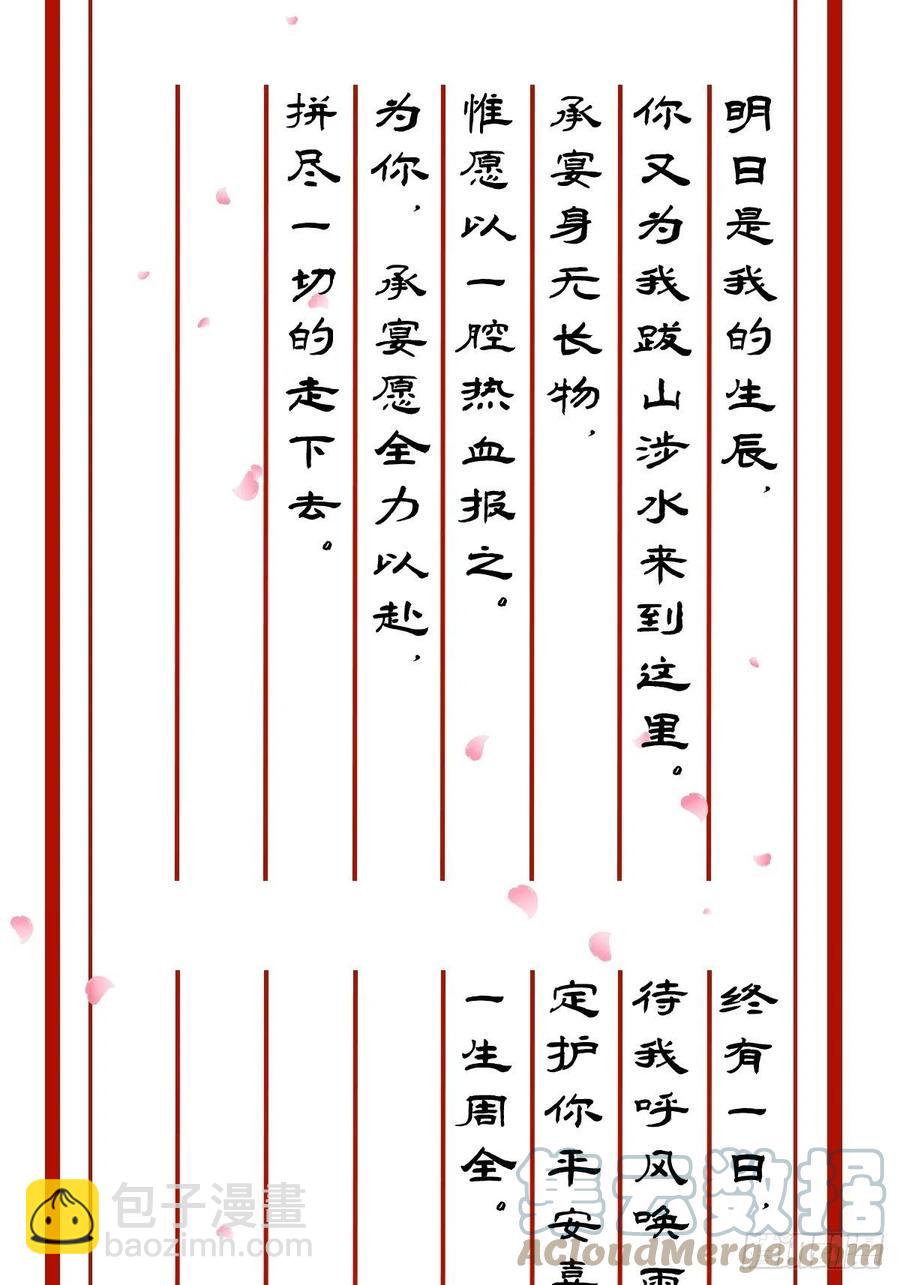 明日是我的生辰，
你又为我跋山涉水来到这里。
承宴身无长物，
惟愿以一腔热血报之。
为你，承宴愿全力以赴，
拼尽一切的走下去。
终有一日，
待我呼风唤雨
定护你平安喜
一生周全。
包子漫畫
baozimh.com
集云数据
ACloudMerge.com